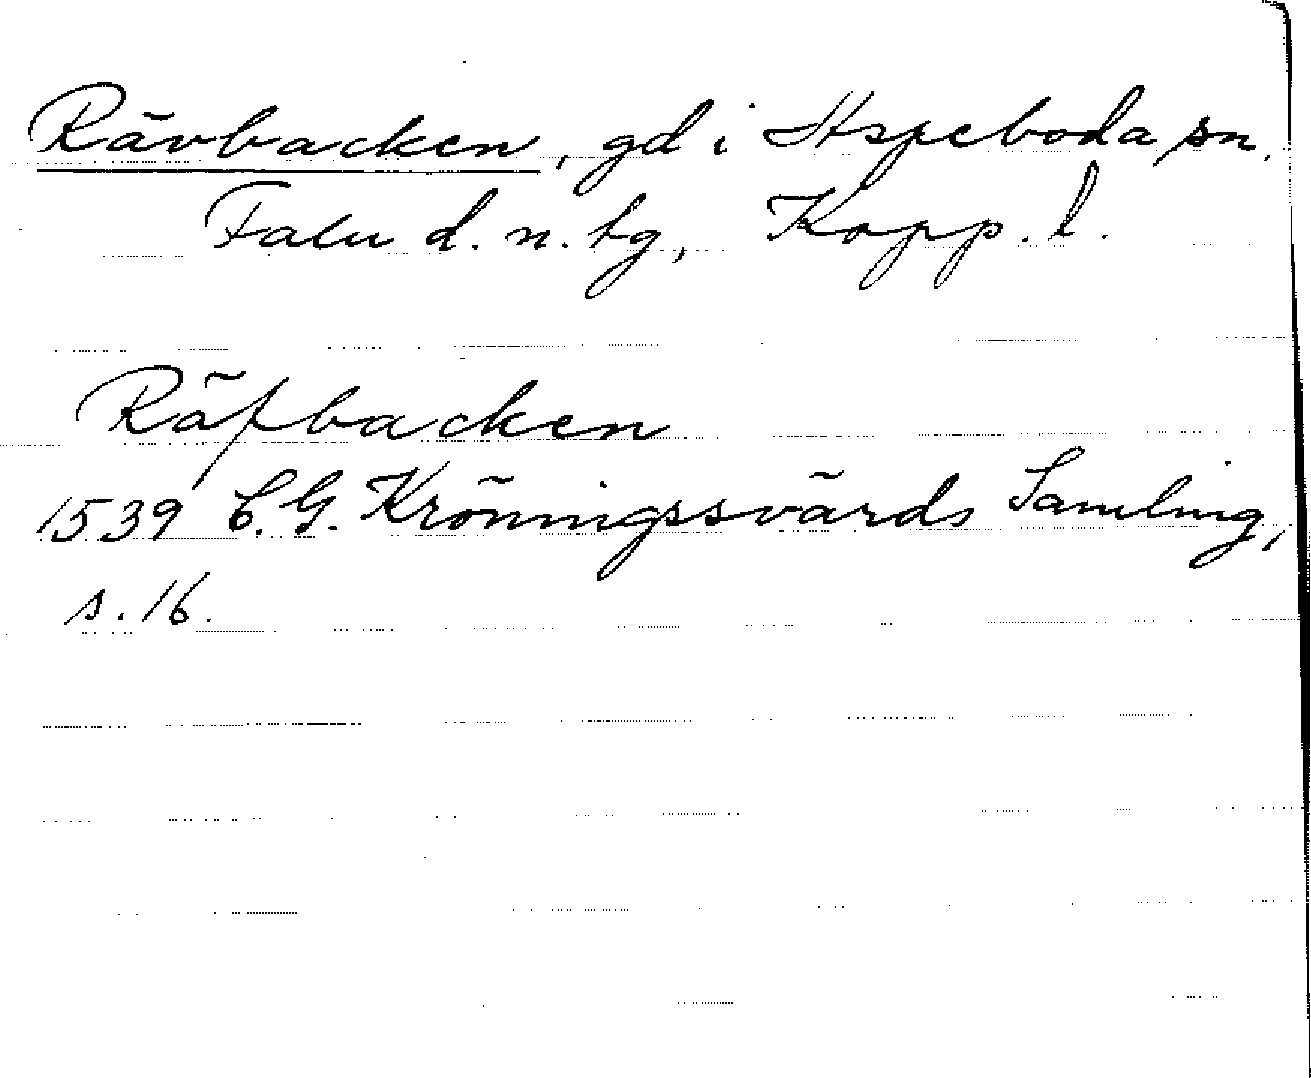 Rävbacken, gd i Aspeboda sn.
Falu d. n. tg, Kopp. l.
Räfbacken
1539 C.G. Kröningssvärds Samling,
s. 16.